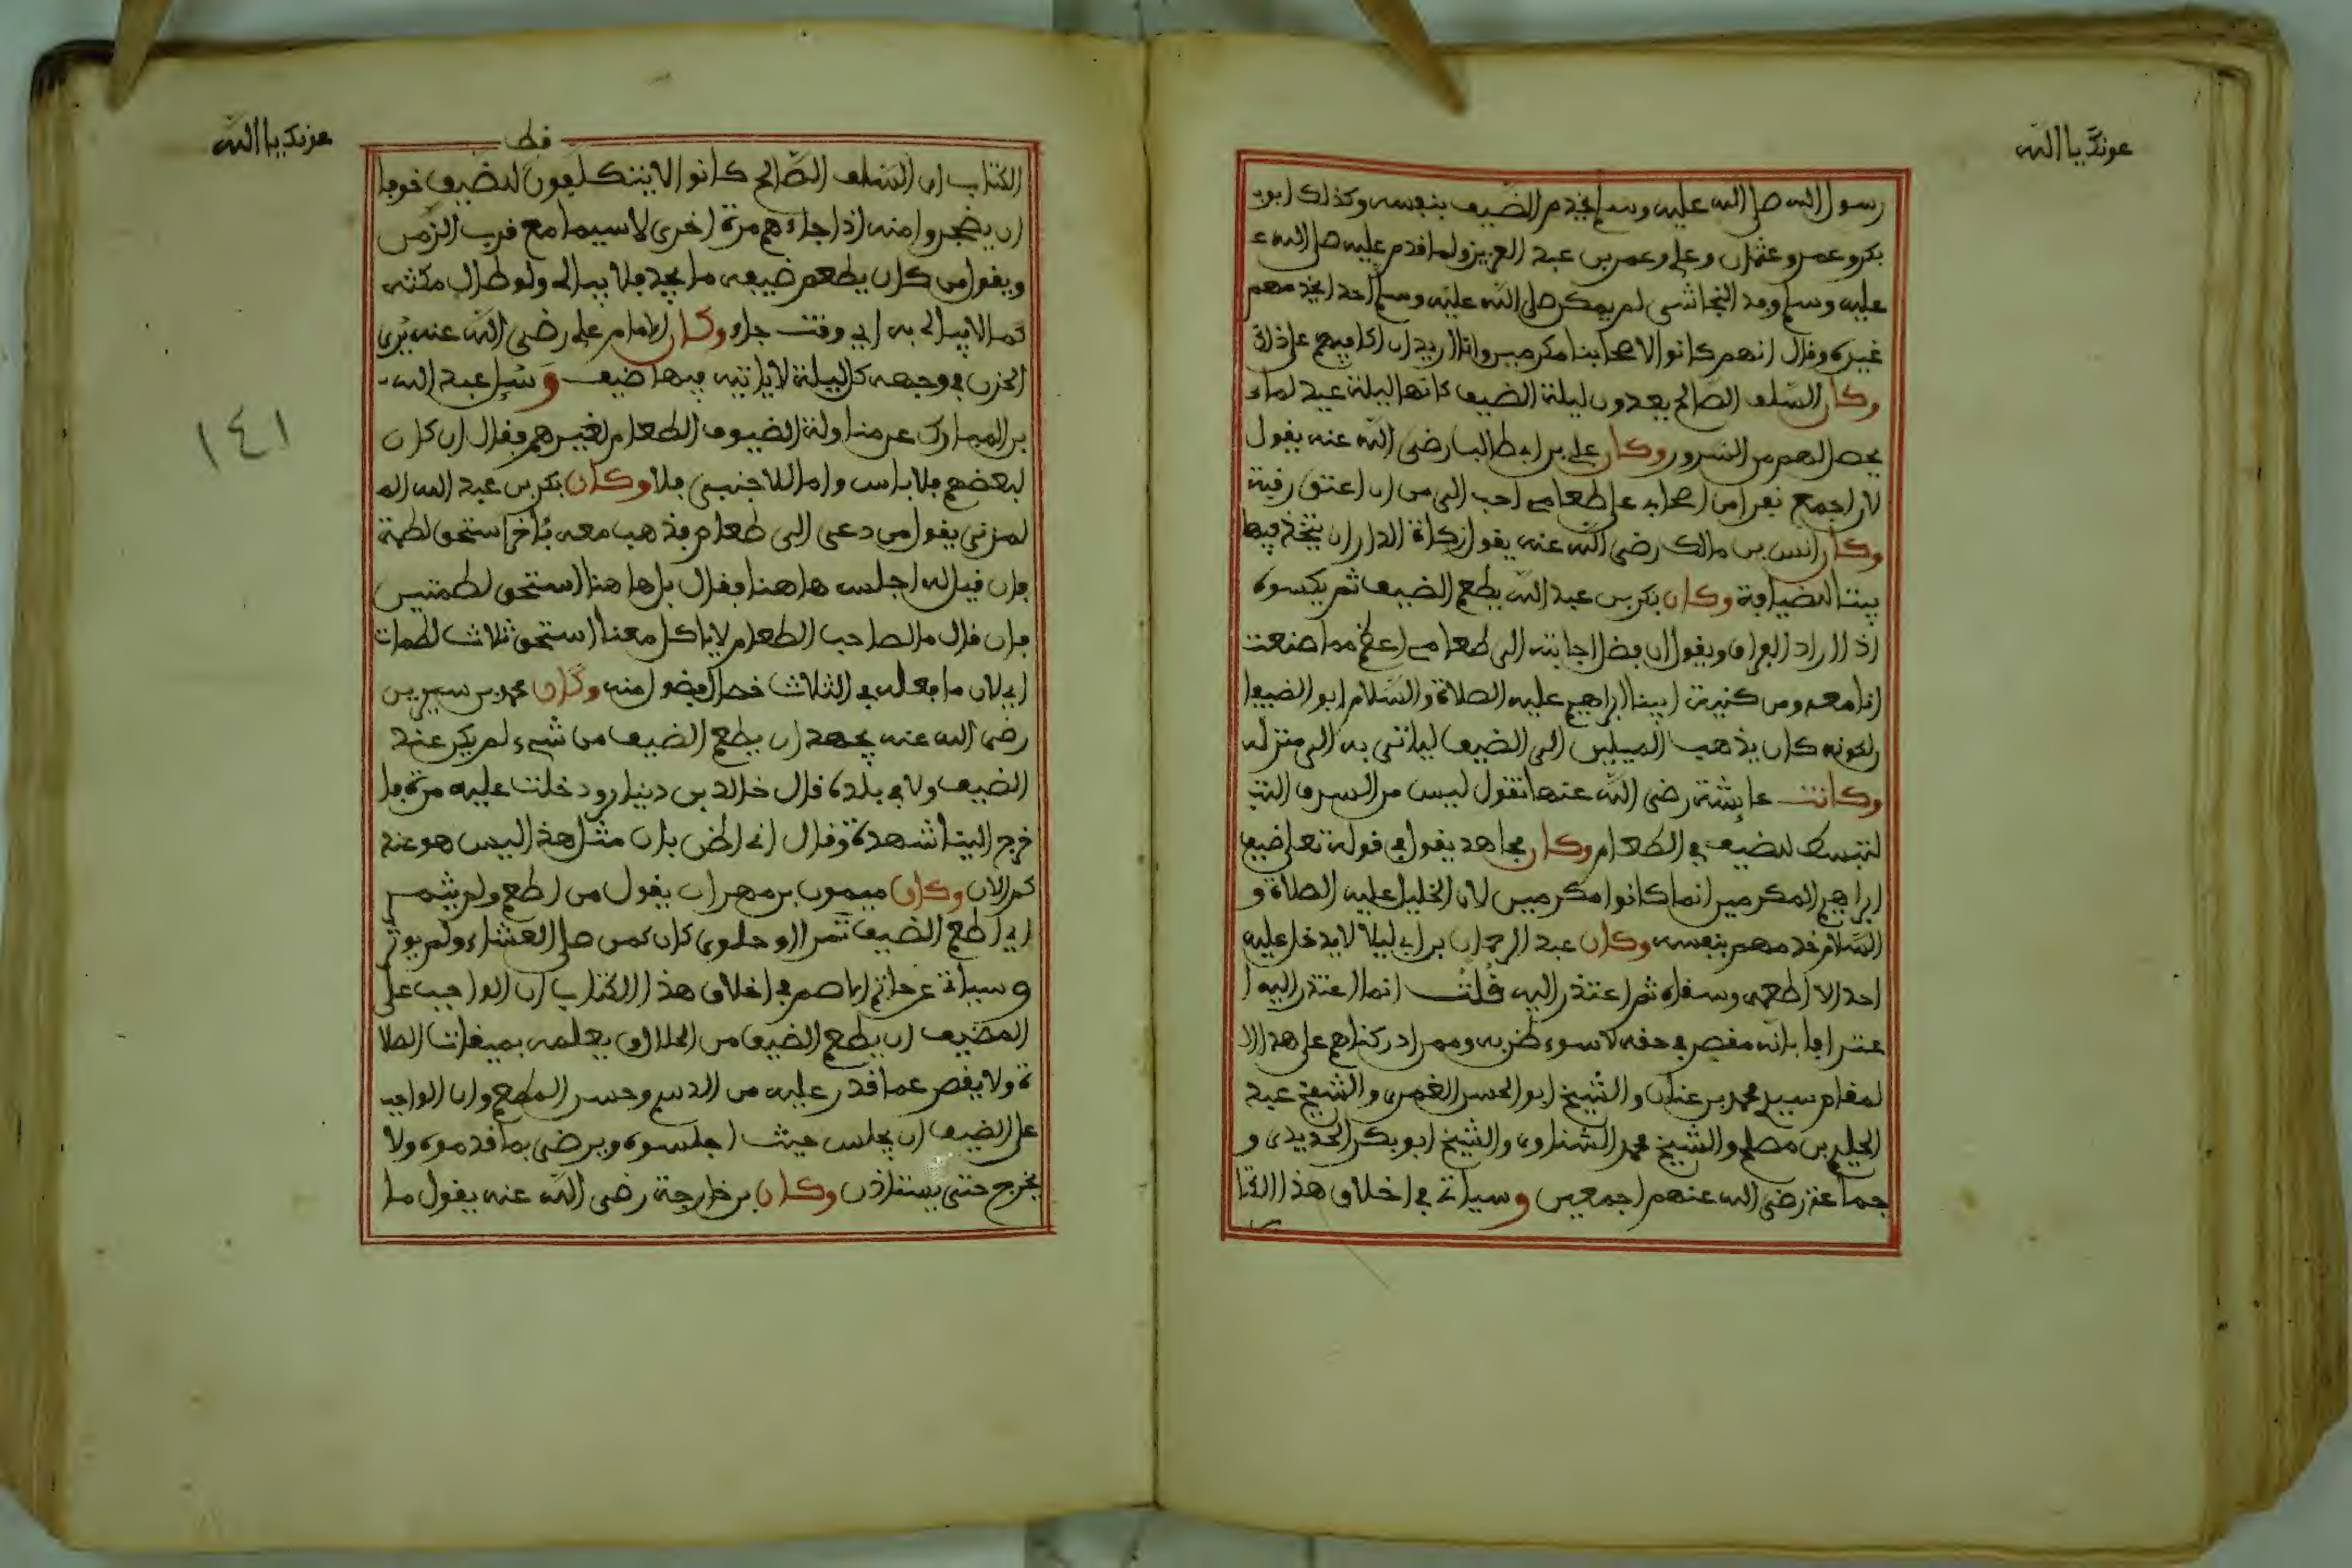 عونك يا الله
رسول الله صلى الله عليه وسلم يخدم الضيف بنفسه وكذلك ابوب
بكر وعمر وعثمان وعلي وعمر بن عبد العزيز ولما قدم عليه صلى الله ع
عليه وسلم وفد النجاشي لم يمكن صلى الله عليه وسلم احدا يخدمهم
غيره وقال انهم كانوا لاصحابنا مكرمين وانا اريد ان اكافيهم على ذلك
وكان السلف الصالح يعدون ليلة الضيف كانها ليلة عيد لما
يحصل لهم من السرور وكان علي بن ابي طالب رضي الله عنه يقول
لان اجمع نفرا من اصحابي على طعامي احب الي من ان اعتق رقبة
وكان انس بن مالك رضي الله عنه يقول زكاة الدار ان يتخذ فيها
بيتا للضيافة وكان بكر بن عبد الله يطعم الضيف ثم يكسوه
اذا اراد الفراق ويقول ان فضل اجابته الى طعامي اعظم مما صنعت
انا معه ومن كنية ابينا ابراهيم عليه الصلاة والسلام ابو الضيفا
لكونه كان يذهب الميلين الى الضيف لياتي به الى منزله
وكانت عايشة رضي الله عنها تقول ليس من السرف التب
لتبسط للضيف في الطعام وكان مجاهد يقول في قوله تعلى ضيف
ابراهيم المكرمين انما كانوا مكرمين لان الخليل عليه الصلاة و
السلام خدمهم بنفسه وكان عبد الرحمان بن ابي ليلا لا يدخل عليه
احد الا اطعمه وسقاه ثم اعتذر اليه قلت انما اعتذر اليه ا
عترافا بانه مقصر في حقه لا سوء ظن به وممن ادركناهم على هذا ال
لمقام سيدي محمد بن عنان والشيخ ابو الحسن الغمري والشيخ عبد
الحليم بن مصلح والشيخ محمد الشناوي والشيخ ابو بكر الحديدي و
جماعة رضي الله عنهم اجمعين وسياتي في اخلاق هذا الكتا
ب
عونك يا الله
الكتاب ان السلف الصالح كانوا لا يتكلفون للضيف خوفا
ان يضجروا منه اذا جاءهم مرة اخرى لا سيما مع قرب الزمن
ويقول من كان يطعم ضيفه ما يجد فلا يبالي ولو طال مكثه
كما لا يبالي به اي وقت جاء وكان الامام علي رضي الله عنه يرى
الحزن في وجهه كل ليلة لا ياتيه فيها ضيف وسئل عبد الله
بن المبارك عن مناولة الضيوف الطعام لغيرهم فقال ان كان
لبعضهم فلا باس واما للاجنبي فلا وكان بكر بن عبد الله الم
لمزني يقول من دعي الى طعام فذهب معه بئاخر استحق لطمة
فان قيل له اجلس ها هنا فقال بل ها هنا استحق لطمتين
فان قال ما لصاحب الطعام لا ياكل معنا استحق ثلاث لطمات
اي لان ما فعله في الثلاث خصال فضول منه وكان محمد بن سيرين
رضي الله عنه يجهد ان يطعم الضيف من شيء لم يكن عند
الضيف ولا في بلده قال خالد بن دينار ودخلت عليه مرة فا
خرج الينا شهدة وقال اني اظن بان مثل هذا ليس هو عند
كم الان وكان ميمون بن مهران يقول من اطعم ولم يثمر
اي اطعم الضيف تمرا او حلوى كان كمن صلى العشاء ولم يوتر
وسياتي عن حاتم الاصم في اخلاق هذا الكتاب ان الواجب على
المضيف ان يطعم الضيف من الحلال وان يعلمه بميقات الصلا
ة ولا يقصر عما قدر عليه من الدسم وحسن المطعم وان الواجب
على الضيف ان يجلس حيث اجلسوه ويرضى بما قدموه ولا
يخرج حتى يستاذن وكان بن خارجة رضي الله عنه يقول ما
١٤١